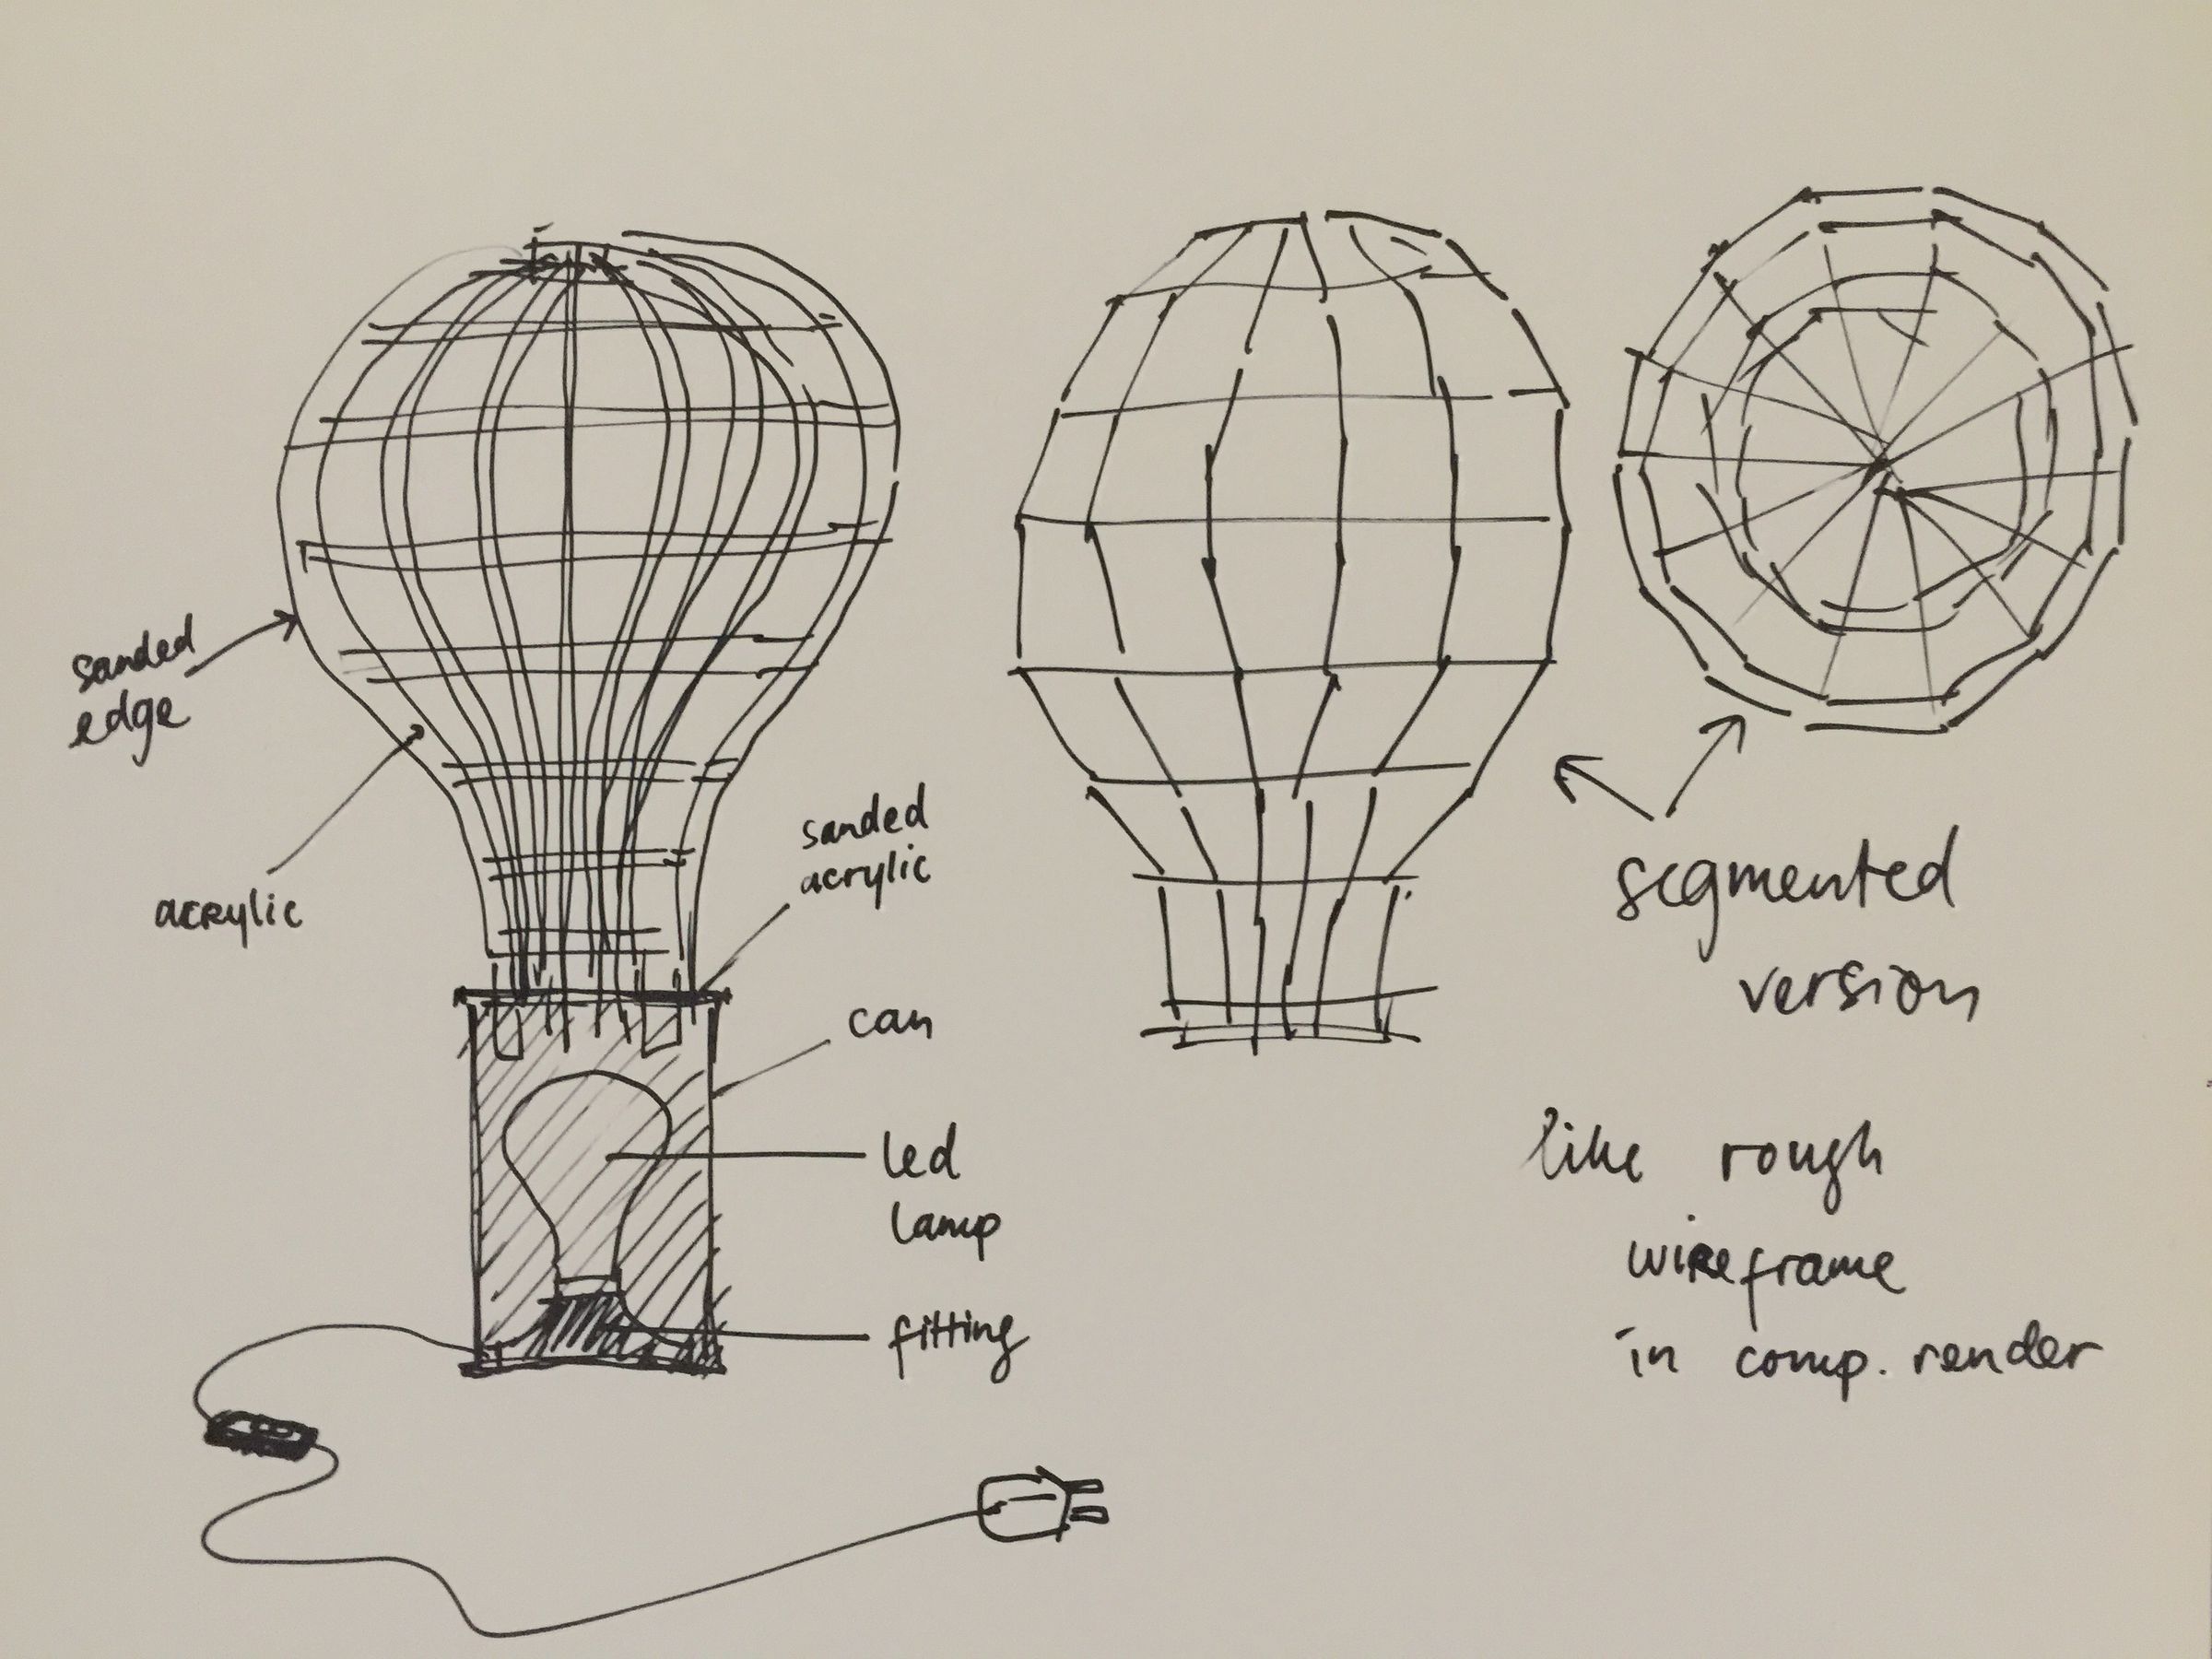 sanded
edge
acrylic
sanded
acrylic
can
led
lamp
fitting
segmented
version
like rough
wireframe
in comp. render